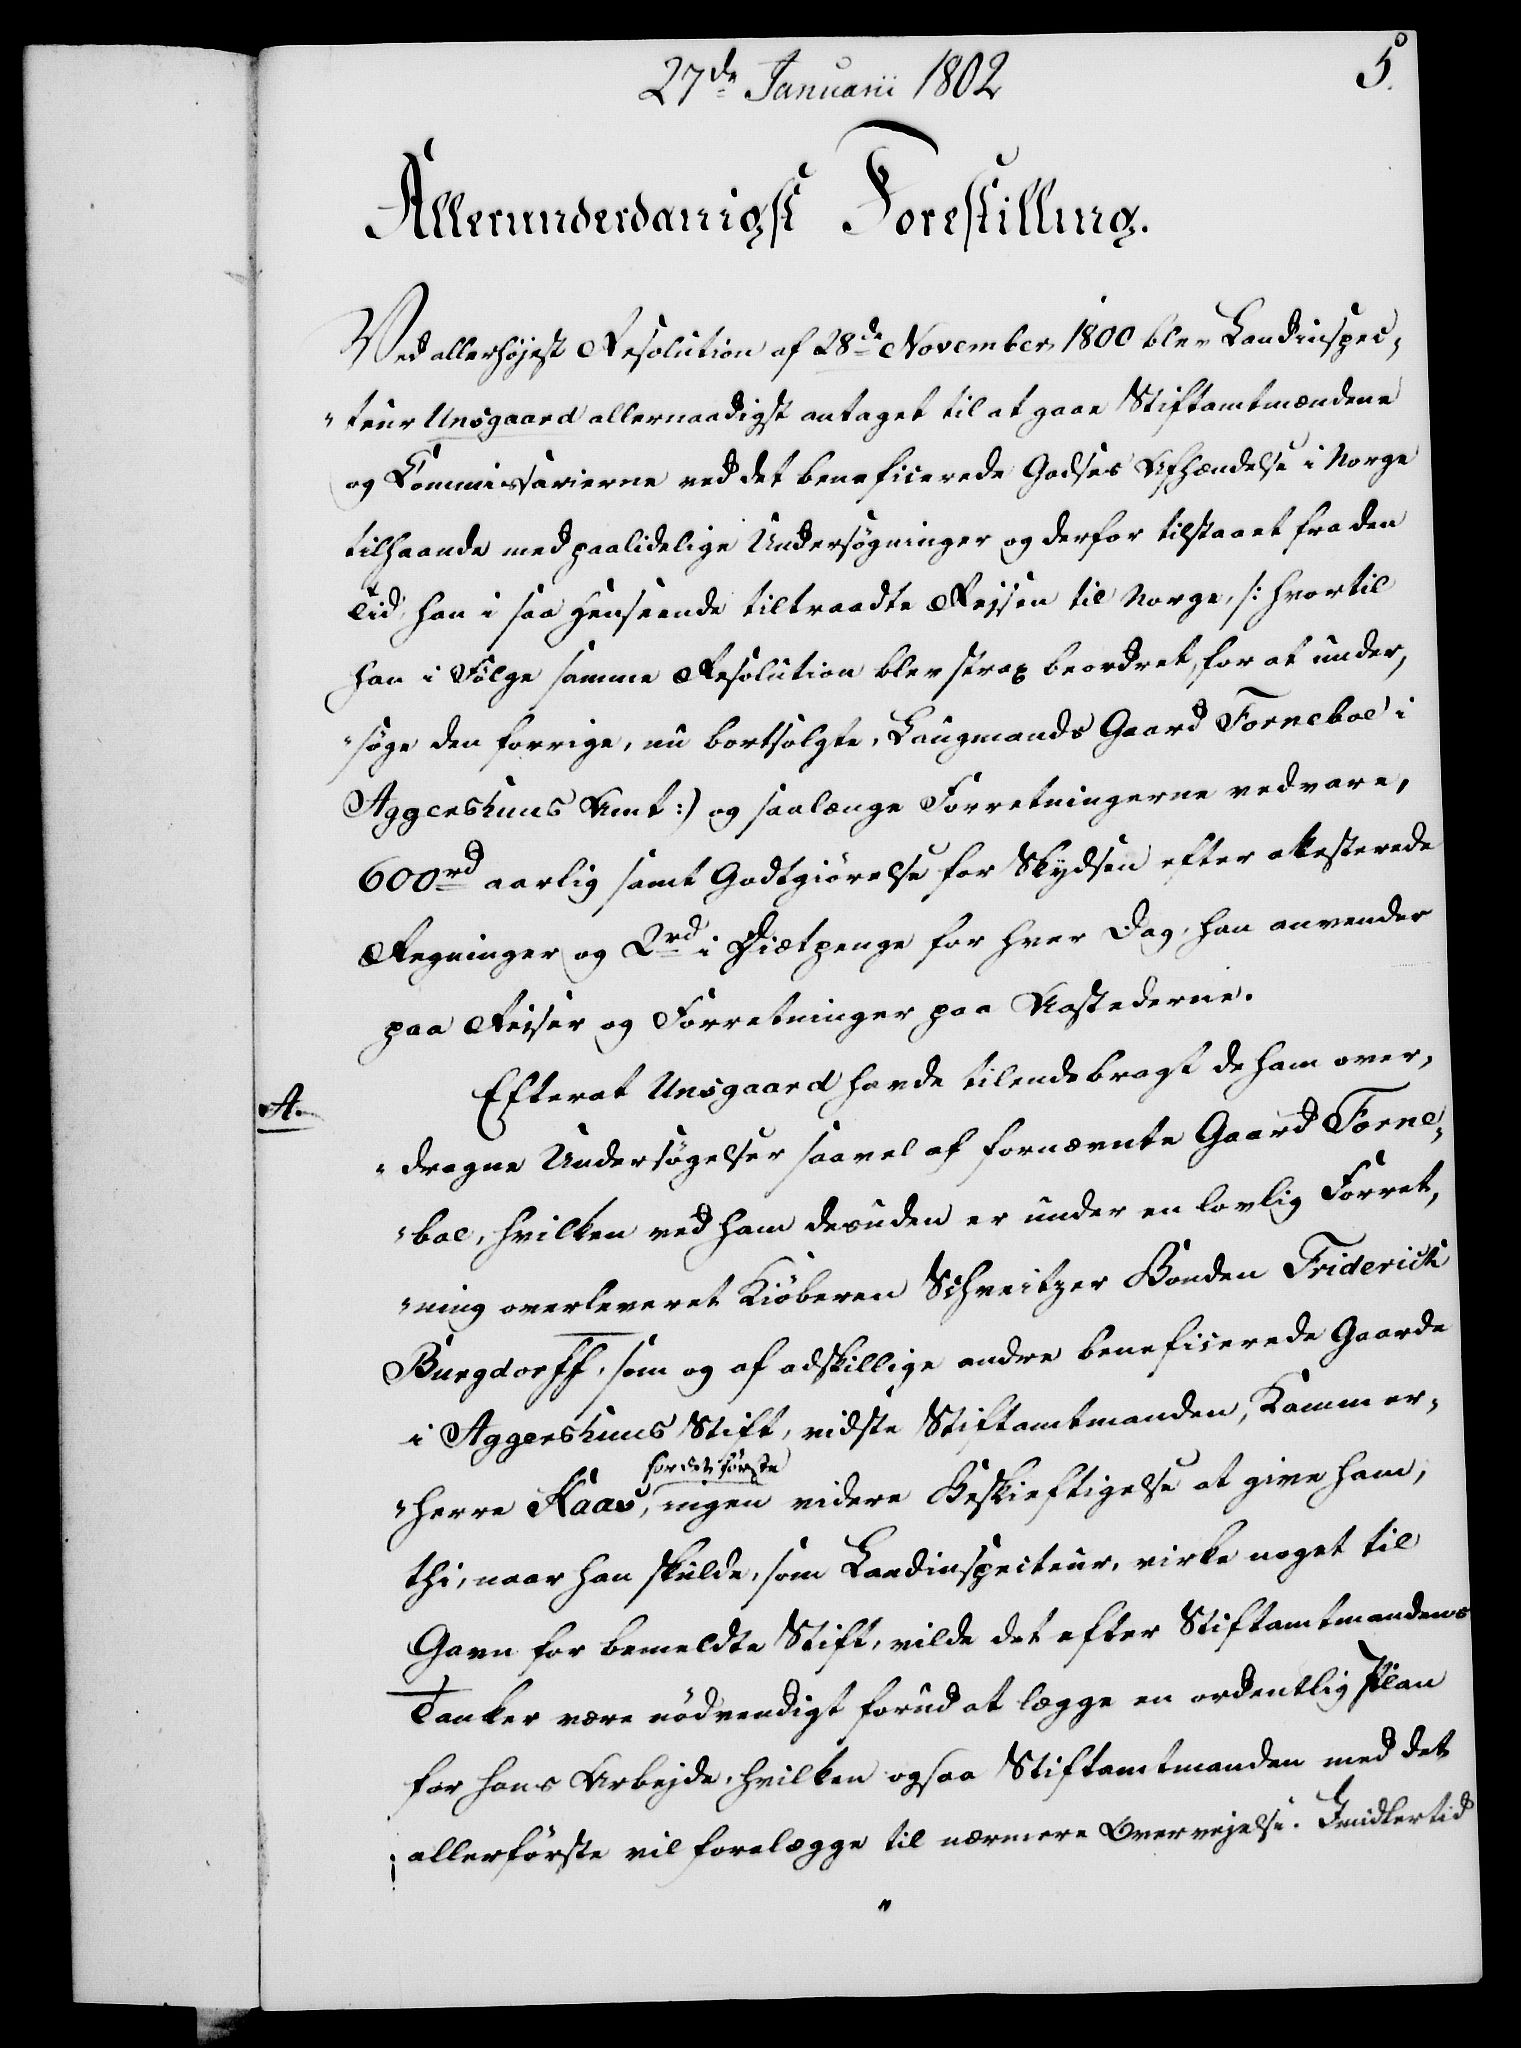 27de Januarii 1802
5.
Allerunderdanigst Forestilling.
Ved allerhøjest Resolution af 28de November 1800 blev Landinspec-
"teur Unsgaard allernaadigst antaget til at gaae Stiftamtmændene
og Commissarierne ved det beneficerede Godses Afhændelse i Norge
tilhaande med paalidelige Undersøgninger og derfor tilstaaet fra den
Tid, han i saa Henseende tiltraadte Rejsen til Norge, /: hvortil
han i Følge samme Resolution blev strax beordret, for at under,
"søge den forrige, nu bortsolgte, Laugmands Gaard Forneboe i
Aggershuus Amt :/ og saalænge Forretningerne vedvare,
600rd aarlig samt Godtgiörelse for Skydsen efter attesterede
Regninger og 2rd i Diætpenge for hver Dag, han anvender
paa Reiser og Forretninger paa Aastederne.
A.
Efterat Unsgaard havde tilendebragt de ham over,
"dragne Undersøgelser saavel af fornævnte Gaard Forne,
"boe, hvilken ved ham desuden er under en lovlig Forret,
"ning overleveret Kiöberen Schweitzer Bonden Friderich
Burgdorff, som og af adskillige andre beneficerede Gaarde
i Aggershuus Stift, vidste Stiftamtmanden, Kammer,
for det første
"herre Kaas, ingen videre Beskieftigelse at give ham,
thi, naar han skulde, som Landinspecteur, virke noget til
Gavn for bemeldte Stift, vilde det efter Stiftamtmandens
Tanker være nödvendigt forud at lægge en ordentlig Plan
for hans Arbejde, hvilken ogsaa Stiftamtmanden med det
allerförste vil forelægge til nærmere Overvejelse. Imidlertid
"